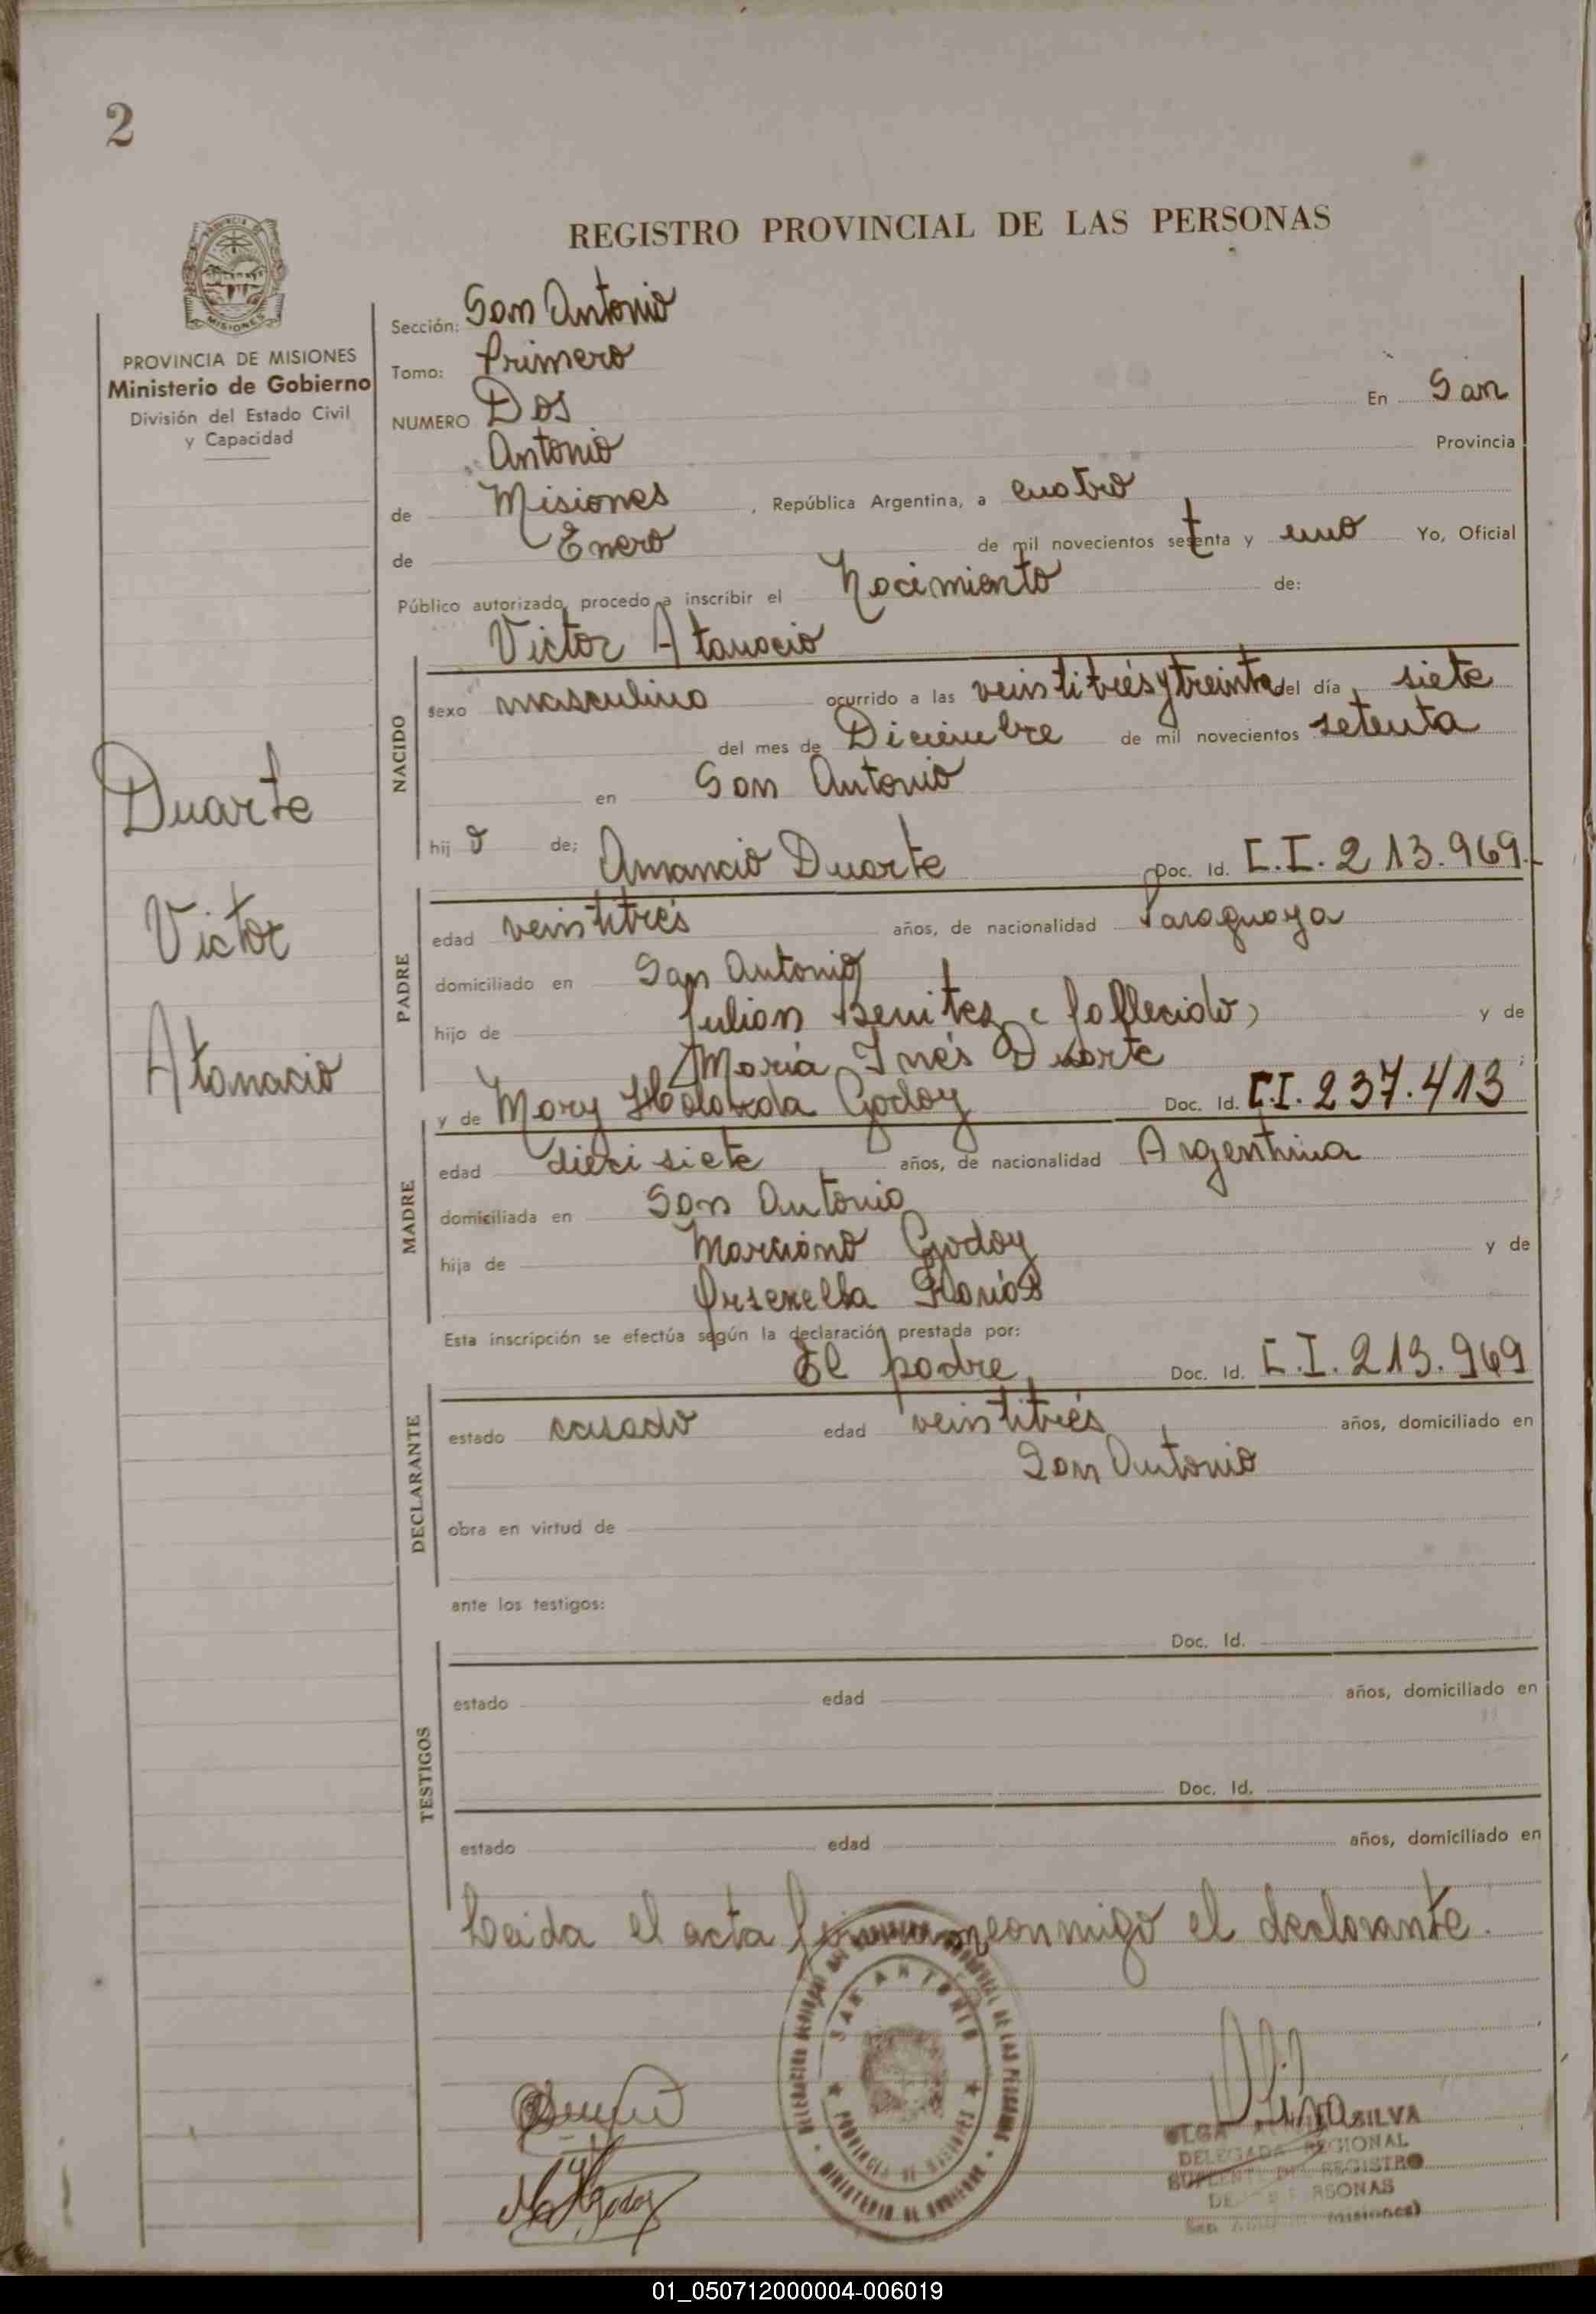 2
REGISTRO PROVINCIAL DE LAS PERSONAS
PROVINCIA DE MISIONES
Ministerio de Gobierno
División del Estado Civil
y Capacidad
Sección: San Antonio
Tomo: Primero
NUMERO Dos En San
Antonio Provincia
de Misiones, República Argentina, a cuatro
de Enero de mil novecientos setenta y uno Yo, Oficial
Público autorizado, procedo a inscribir el Nacimiento de:
Victor Atanacio
NACIDO
sexo masculino ocurrido a las veintitrés y treinta del día siete
del mes de Diciembre de mil novecientos setenta
en San Antonio
hijo de; Amancio Duarte Doc. Id. C.I. 213.969.-
Duarte
Victor
Atanacio
PADRE
edad veintitrés años, de nacionalidad Paraguaya
domiciliado en San Antonio
hijo de Julian Benitez (fallecido) y de
María Inés Duarte
y de Mary Godoy Doc. Id. C.I. 237.413
MADRE
edad dieci siete años, de nacionalidad Argentina
domiciliada en San Antonio
hija de Marciano Godoy y de
Esta inscripción se efectúa según la declaración prestada por:
El padre Doc. Id. C.I. 213.969
DECLARANTE
estado casado edad veintitrés años, domiciliado en
San Antonio
obra en virtud de
ante los testigos:
TESTIGOS
Doc. Id.
estado edad años, domiciliado en
Doc. Id.
estado edad años, domiciliado en
Leida el acta conmigo el declarante.
SAN ANTONIO
PROVINCIA DE MISIONES
MINISTERIO DE GOBIERNO
OLGA SILVA
DELEGADA REGIONAL
SUPLENTE DEL REGISTRO
DE PERSONAS
San (Misiones)
01_050712000004-006019